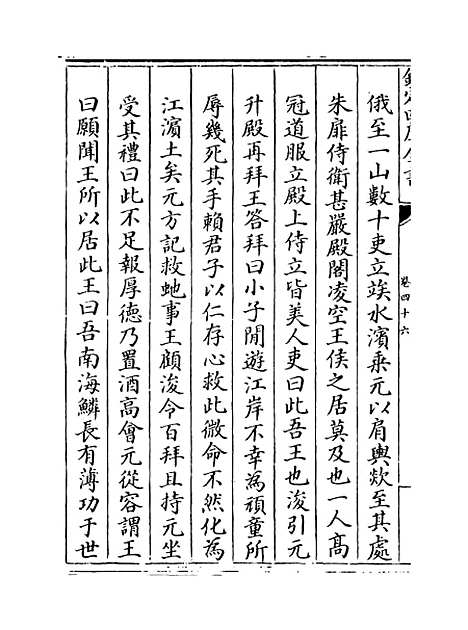 欽定四庫全書
卷四十六
俄至一山數十吏立俟水濱乘元以肩輿欻至其處
朱扉侍衛甚嚴殿閣凌空王侯之居莫及也一人高
冠道服立殿上侍立皆美人吏曰此吾王也浚引元
升殿再拜王答拜曰小子閒遊江岸不幸為頑童所
辱幾死其手賴君子以仁存心救此微命不然化為
江濵土矣元方記救虵事王顧浚令百拜且持元坐
受其禮曰此不足報厚德乃置酒高會元從容謂王
曰願聞王所以居此王曰吾南海鱗長有薄功于世